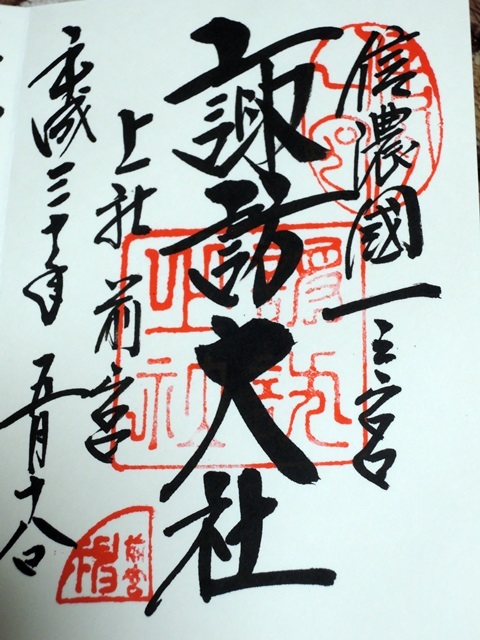 信濃國一之宮
諏訪大社
上社前宮
平成三十年五月十八日
前宮